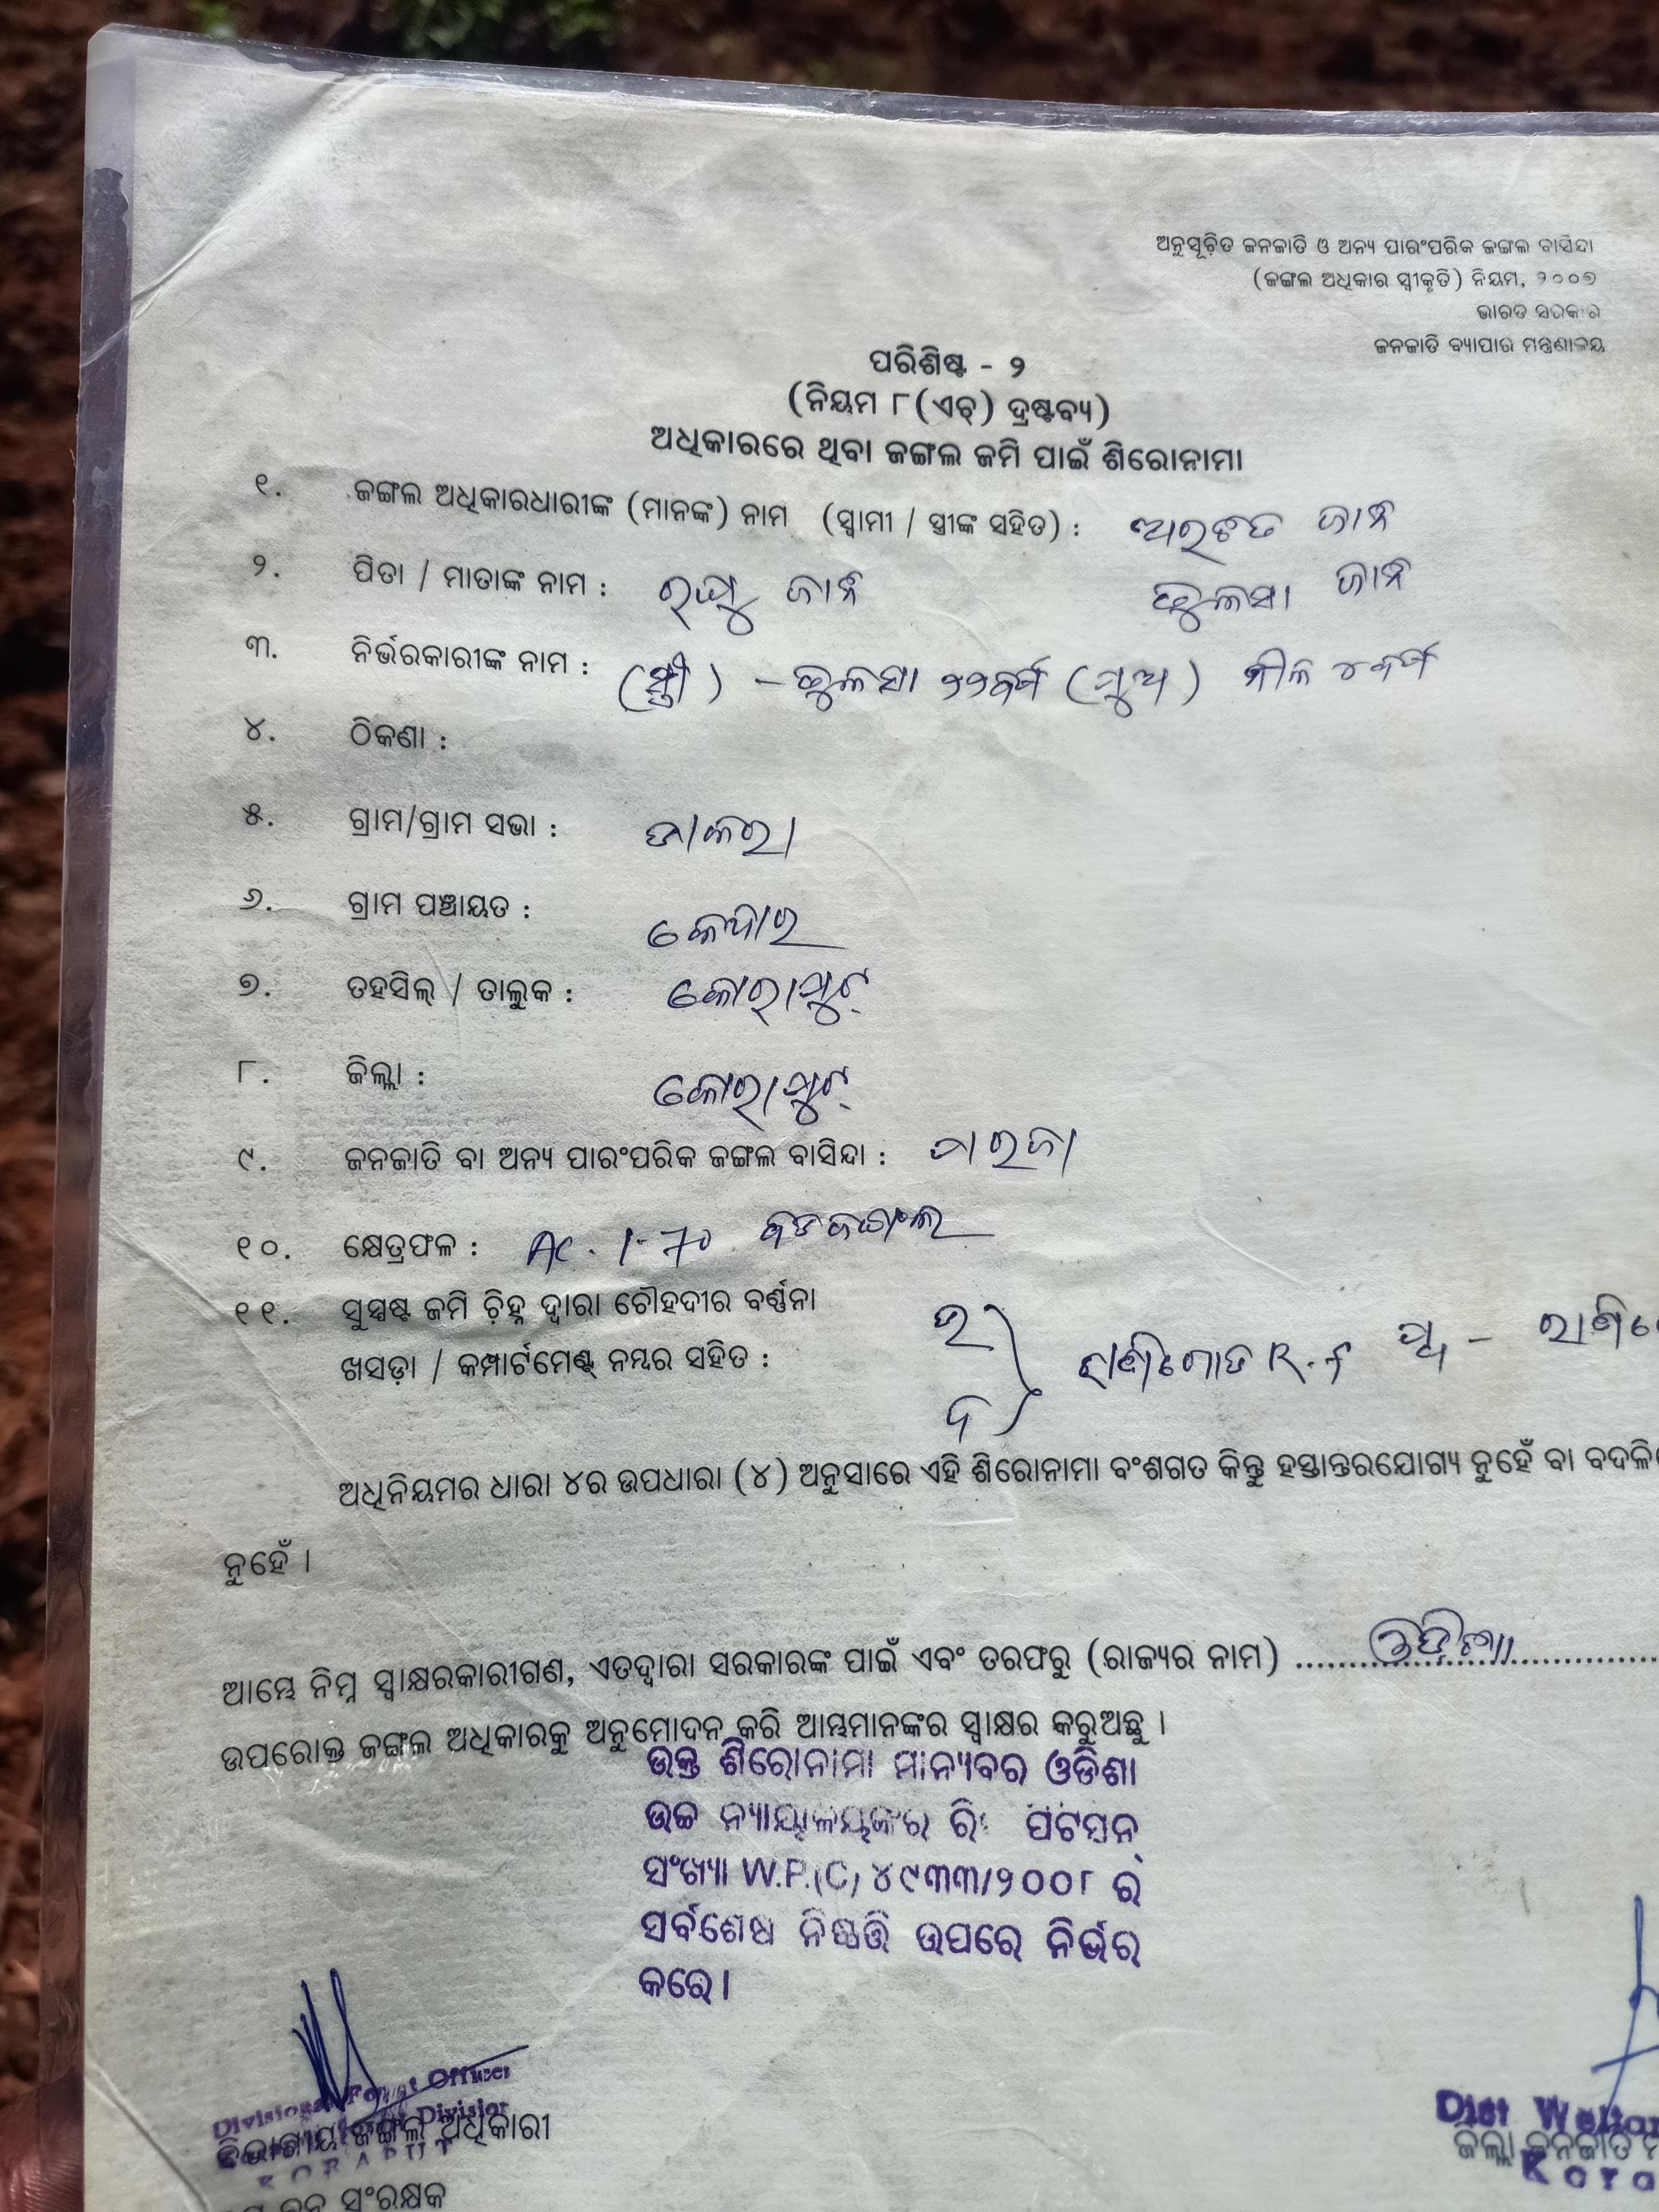 ଅନୁସୂଚିତ ଜନଜାତି ଓ ଅନ୍ୟ ପାରଂପରିକ ଜଙ୍ଗଲ ବାସିନ୍ଦା
(ଜଙ୍ଗଲ ଅଧିକାର ସ୍ୱୀକୃତି) ନିୟମ, ୨୦୦୭
ଭାରତ ସରକାର
ଜନଜାତି ବ୍ୟାପାର ମନ୍ତ୍ରଣାଳୟ
ପରିଶିଷ୍ଟ - ୨
(ନିୟମ ୮(ଏଚ୍) ଦ୍ରଷ୍ଟବ୍ୟ)
ଅଧିକାରରେ ଥିବା ଜଙ୍ଗଲ ଜମି ପାଇଁ ଶିରୋନାମା
୧. ଜଙ୍ଗଲ ଅଧିକାରଧାରୀଙ୍କ (ମାନଙ୍କ) ନାମ (ସ୍ୱାମୀ / ସ୍ତ୍ରୀଙ୍କ ସହିତ) : ଜାନି
୨. ପିତା / ମାତାଙ୍କ ନାମ : ରଘୁ ଜାନି ତୁଳସା ଜାନି
୩. ନିର୍ଭରକାରୀଙ୍କ ନାମ : (ସ୍ତ୍ରୀ) - ତୁଳସା ୨୨ବର୍ଷ (ପୁଅ) ୪ବର୍ଷ
୪. ଠିକଣା :
୫. ଗ୍ରାମ/ଗ୍ରାମ ସଭା :
୬. ଗ୍ରାମ ପଞ୍ଚାୟତ :
୭. ତହସିଲ୍ / ତାଲୁକ : କୋରାପୁଟ୍
୮. ଜିଲ୍ଲା : କୋରାପୁଟ୍
୯. ଜନଜାତି ବା ଅନ୍ୟ ପାରଂପରିକ ଜଙ୍ଗଲ ବାସିନ୍ଦା : ପାରଜା
୧୦. କ୍ଷେତ୍ରଫଳ : Ac. 1-70
୧୧. ସୁସ୍ପଷ୍ଟ ଜମି ଚିହ୍ନ ଦ୍ୱାରା ଚୌହଦୀର ବର୍ଣ୍ଣନା ଉ
ଖସଡ଼ା / କମ୍ପାର୍ଟମେଣ୍ଟ୍ ନମ୍ବର ସହିତ : R.F ପୂ -
ଦ
ଅଧିନିୟମର ଧାରା ୪ର ଉପଧାରା (୪) ଅନୁସାରେ ଏହି ଶିରୋନାମା ବଂଶଗତ କିନ୍ତୁ ହସ୍ତାନ୍ତରଯୋଗ୍ୟ ନୁହେଁ ବା
ନୁହେଁ ।
ଆମ୍ଭେ ନିମ୍ନ ସ୍ୱାକ୍ଷରକାରୀଗଣ, ଏତଦ୍ୱାରା ସରକାରଙ୍କ ପାଇଁ ଏବଂ ତରଫରୁ (ରାଜ୍ୟର ନାମ) ଓଡ଼ିଶା
ଉପରୋକ୍ତ ଜଙ୍ଗଲ ଅଧିକାରକୁ ଅନୁମୋଦନ କରି ଆମ୍ଭମାନଙ୍କର ସ୍ୱାକ୍ଷର କରୁଅଛୁ ।
ଉକ୍ତ ଶିରୋନାମା ମାନ୍ୟବର ଓଡିଶା
ଉଚ୍ଚ ନ୍ୟାୟାଳୟଙ୍କର ରିଟ ପିଟସନ୍
ସଂଖ୍ୟା W.P.(C) ୪୯୩୩/୨୦୦୮ ର
ସର୍ବଶେଷ ନିଷ୍ପତ୍ତି ଉପରେ ନିର୍ଭର
କରେ।
Divisional Forest Officer
Division
ବିଭାଗୀୟ ଜଙ୍ଗଲ ଅଧିକାରୀ
KORAPUT
ସଂରକ୍ଷକ
Dist
ଜିଲ୍ଲା ଜନଜାତି